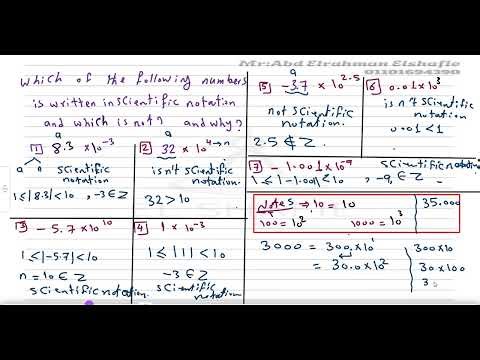 Mr:Abd Elrahman Elshafie
01101694390
which of the following numbers
is written in scientific notation
and which is not? and why?
1 8.3 × 10⁻³
a n
scientific notation
1 ≤ |8.3| < 10, -3 ∈ Z
2 a 32 × 10⁴ → n
isn't scientific notation
32 > 10
3 - 5.7 × 10¹⁰
1 ≤ |-5.7| < 10
n = 10 ∈ Z
scientific notation.
4 1 × 10⁻³
1 ≤ |1| < 10
-3 ∈ Z
scientific notation
5 a -3.7 × 10²·⁵
not scientific notation
2.5 ∉ Z
6 0.01 × 10³
isn't scientific notation
0.01 < 1
7 - 1.001 × 10⁻⁹
scientific notation
1 ≤ |-1.001| < 10, -9 ∈ Z
Notes ⇒ 10 = 10
100 = 10² 1000 = 10³
35.000
3000 = 300 × 10¹
= 30.0 × 10²
300 × 10
30 × 100
3